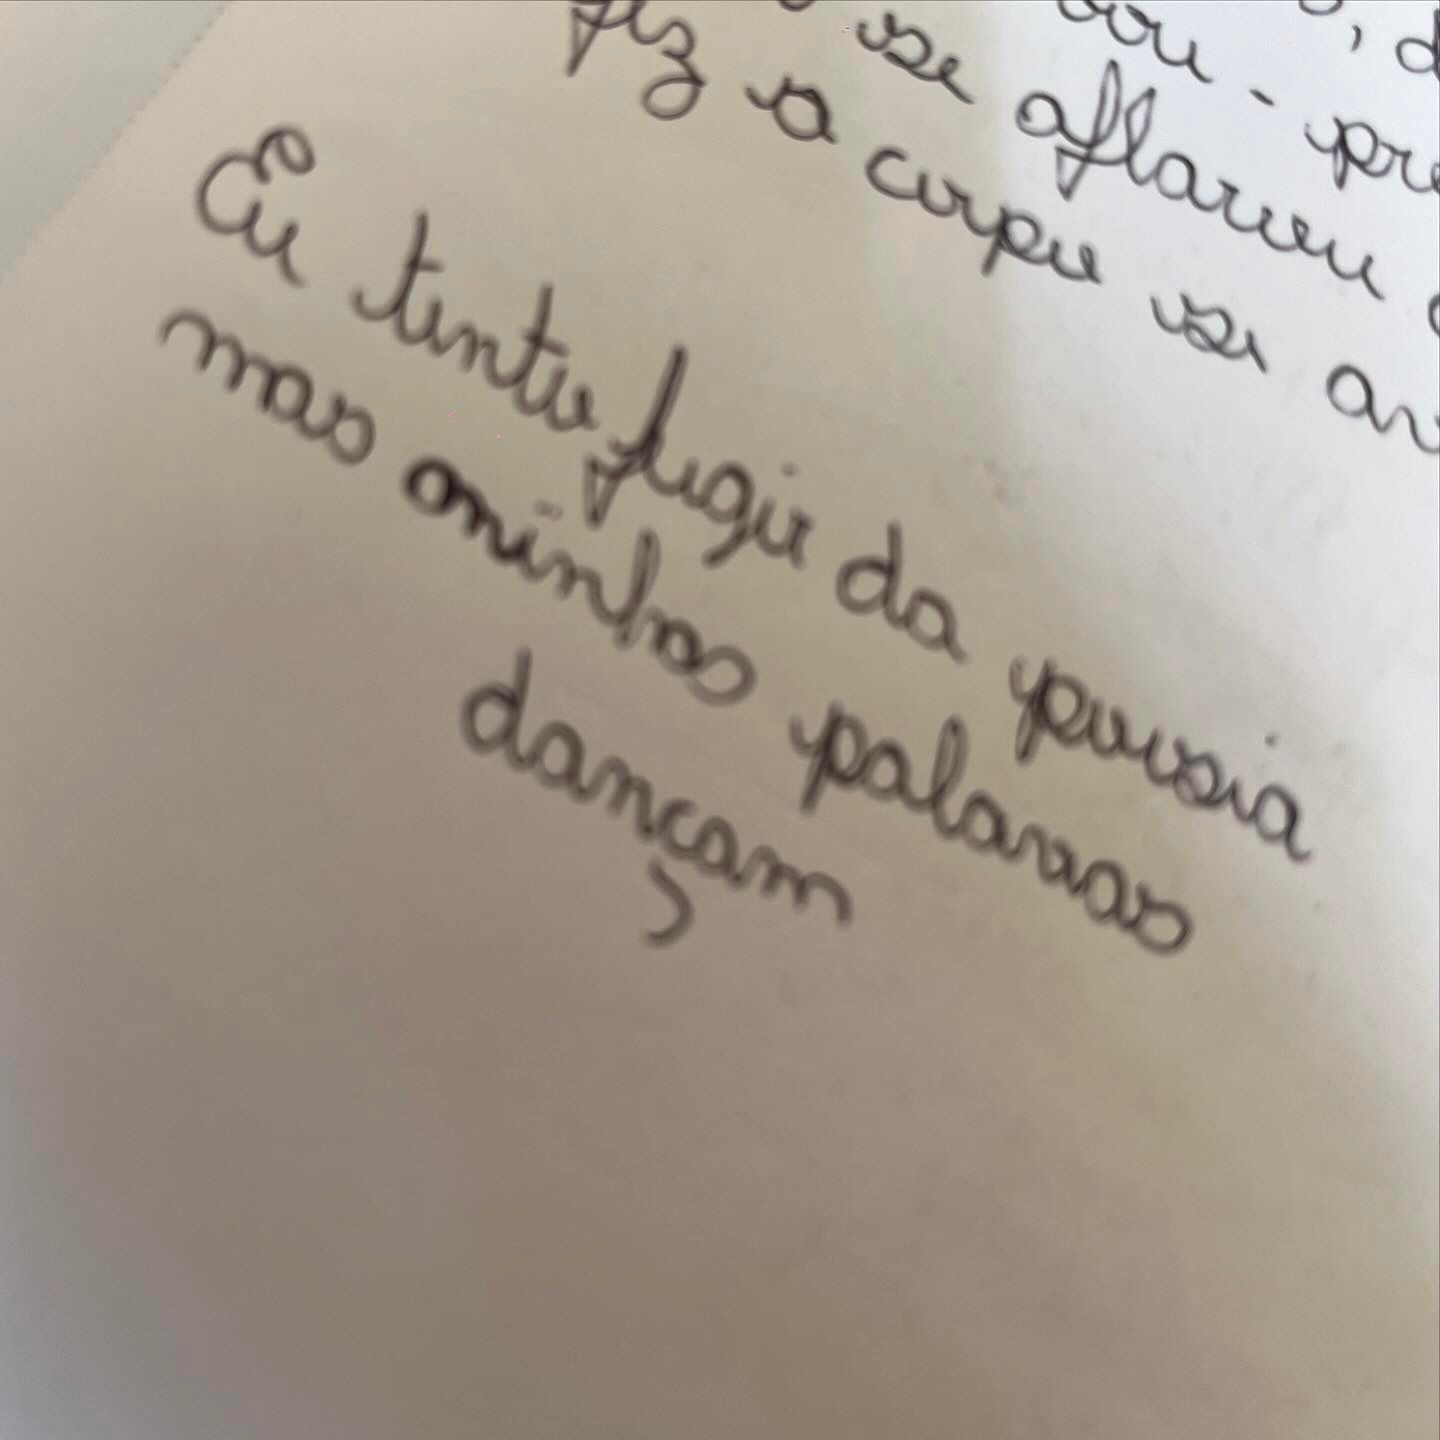 se aflorou
fiz o corpo se
Eu tento fugir da poesia
mas minhas palavras
dançam